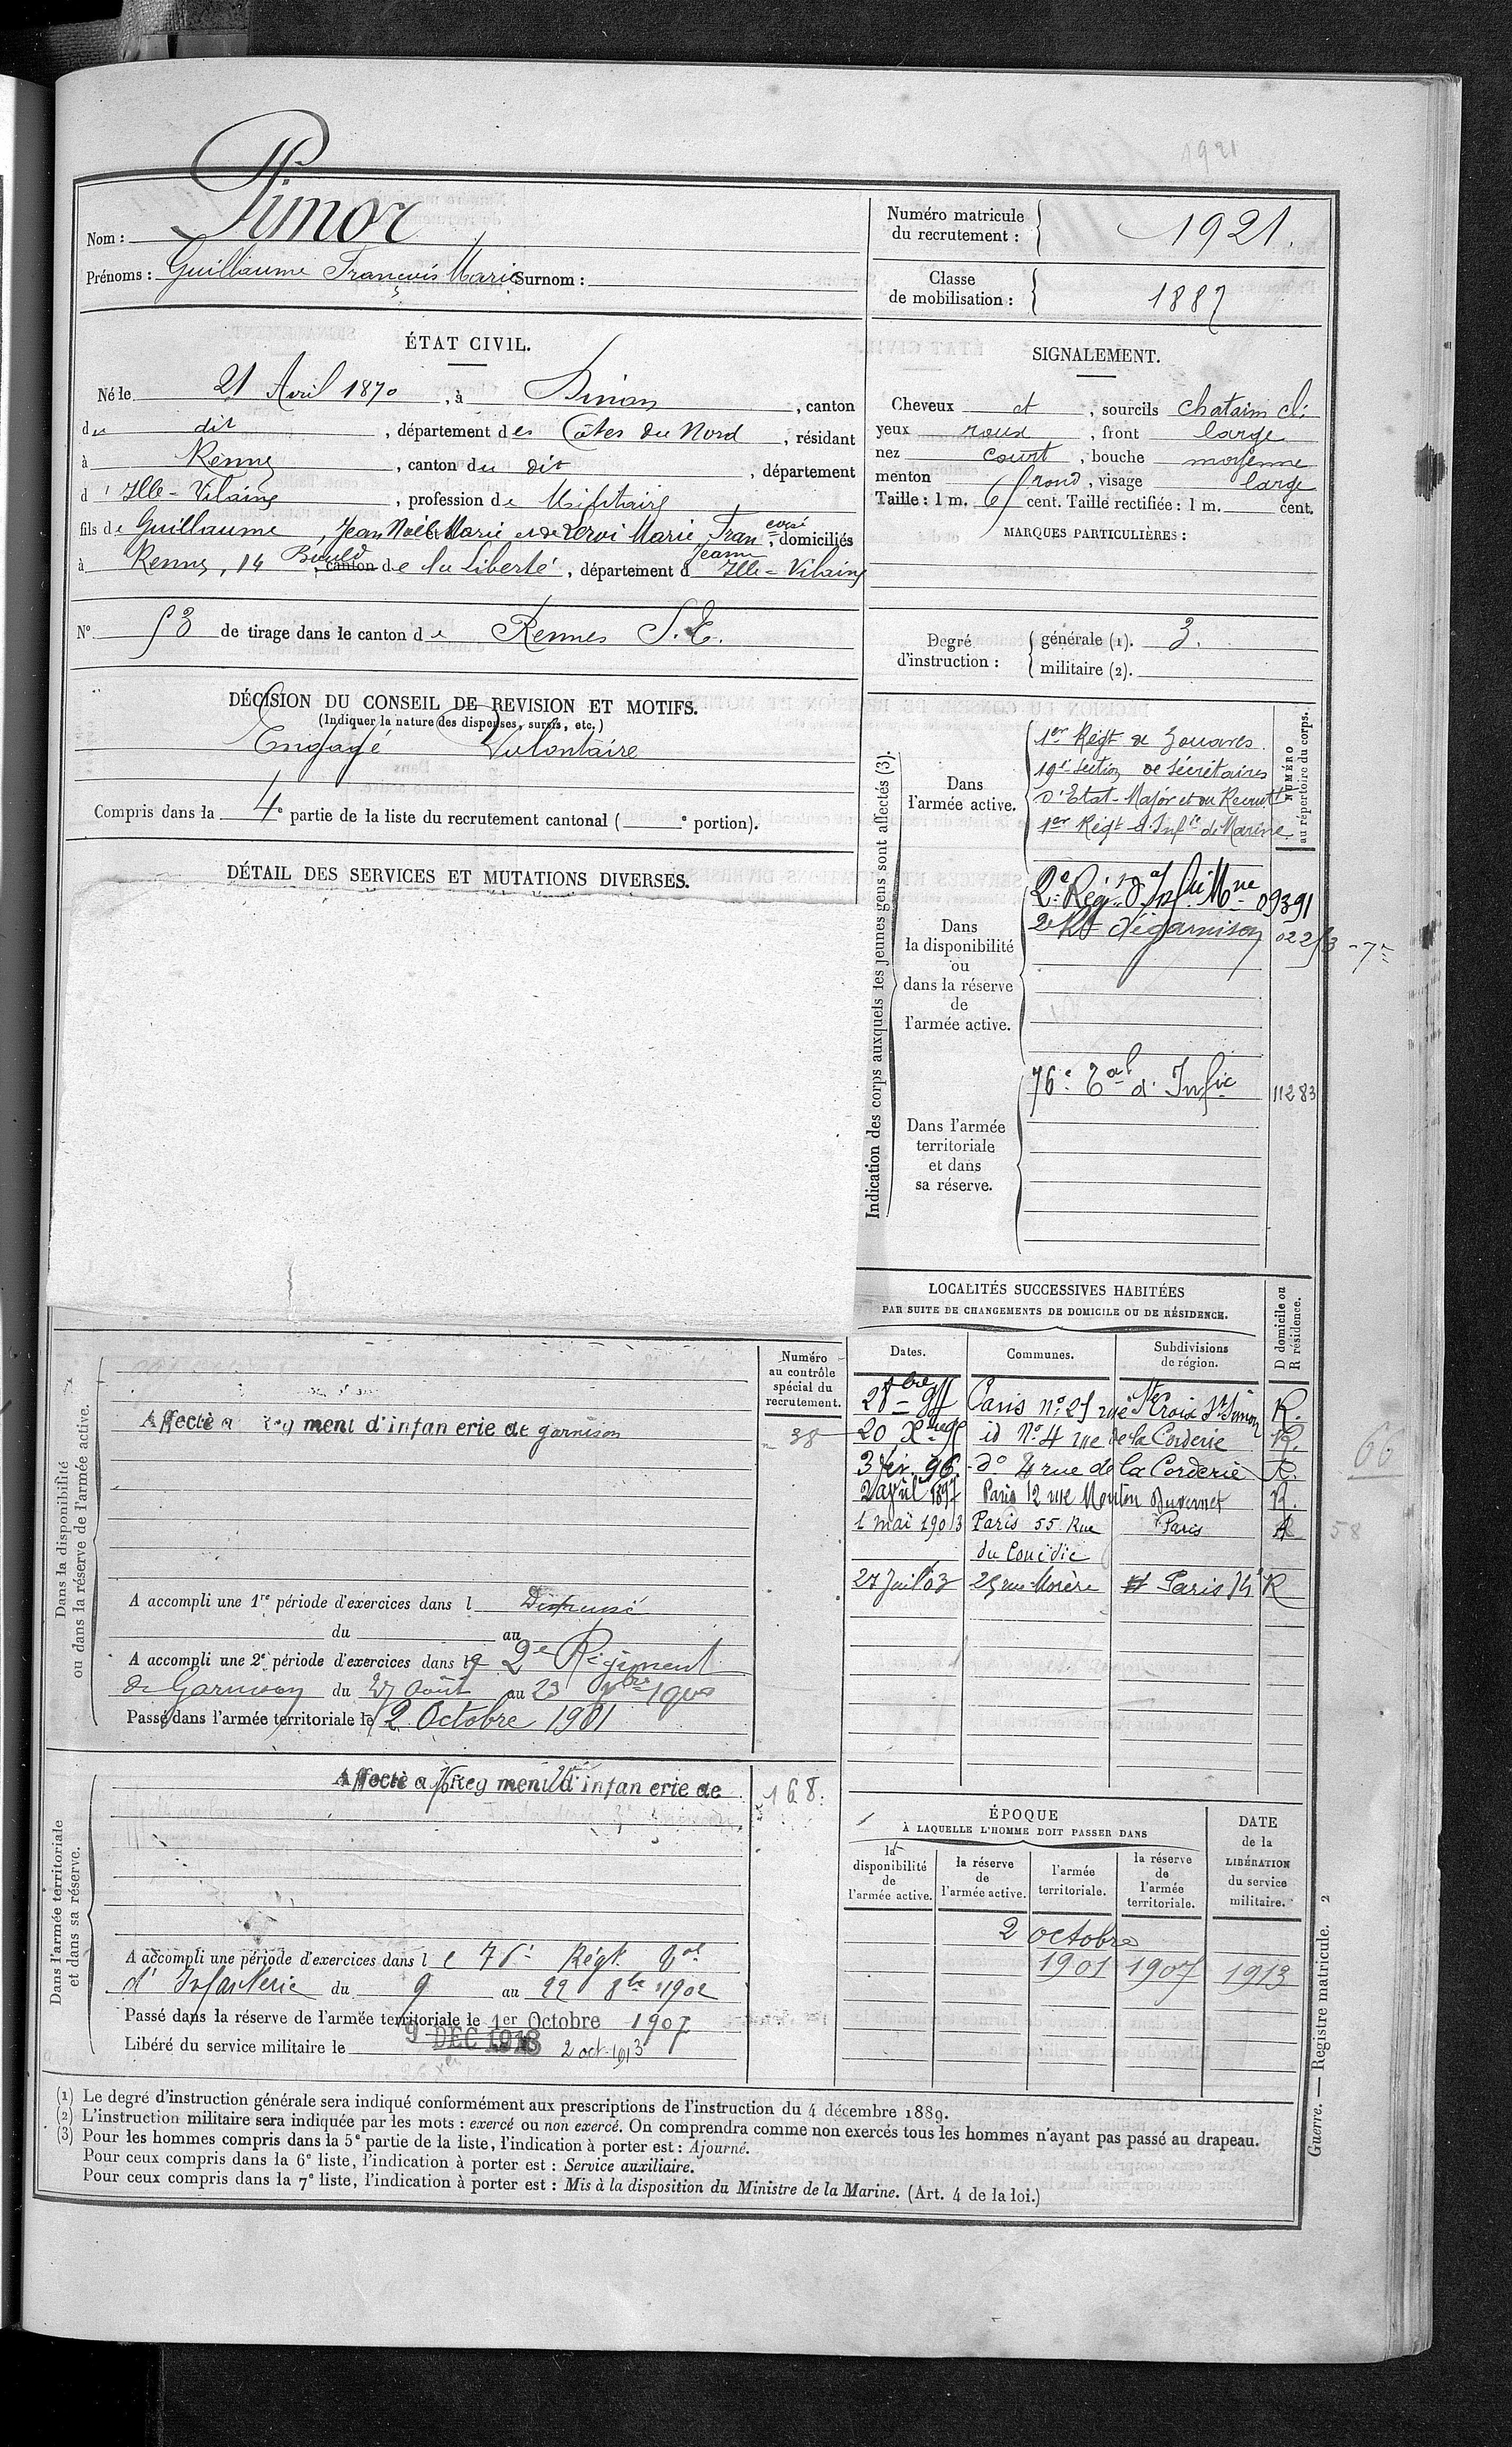 1921
Nom : Pimor
Prénoms : Guillaume François Marie Surnom :
Numéro matricule
du recrutement : 1921.
Classe
de mobilisation : 1887
ÉTAT CIVIL.
Né le 21 Avril 1870, à Dinan, canton
du dit, département des Côtes du Nord, résidant
à Rennes, canton du dit, département
d' Ille-Vilaine, profession de Militaire
fils de Guillaume, Jean Noël Marie et de Leroi Marie, Fran çoise Jeanne, domiciliés
à Rennes, 14 Bould canton de la Liberté, département d Ille-Vilaine
N° 53 de tirage dans le canton de Rennes S.E.
SIGNALEMENT.
Cheveux et, sourcils chatain cl:
yeux roux, front large
nez court, bouche moyenne
menton rond, visage large
Taille : 1 m. 65 cent. Taille rectifiée : 1 m. cent.
MARQUES PARTICULIÈRES :
Degré
d'instruction :
générale (1). 3.
militaire (2).
DÉCISION DU CONSEIL DE REVISION ET MOTIFS.
(Indiquer la nature des dispenses, sursis, etc.)
Engagé Volontaire
Compris dans la 4e partie de la liste du recrutement cantonal ( e portion).
DÉTAIL DES SERVICES ET MUTATIONS DIVERSES.
Indication des corps auxquels les jeunes gens sont affectés (3).
NUMÉRO
au répertoire du corps.
Dans
l'armée active.
1er Régt de Zouaves
19e Section de Secrétaires
d'Etat-Major et du Recrutt
1er Régt d'Infie de Marine
Dans
la disponibilité
ou
dans la réserve
de
l'armée active.
2e Régt d'Infie Mne 09391
2e Rt de garnison
Dans l'armée
territoriale
et dans
sa réserve.
76e Tal d'Infie 11283
LOCALITÉS SUCCESSIVES HABITÉES
PAR SUITE DE CHANGEMENTS DE DOMICILE OU DE RÉSIDENCE.
Dates. Communes. Subdivisions
de région.
D domicile ou
R résidence.
Paris n° 25 rue Ste Croix R.
20 id N° 4 rue de la Corderie R.
3 fév. 96. do 4 rue de la Corderie R.
2 avril 1897 Paris 12 rue Mouton Duvernet R.
1 mai 1903 Paris 55 Rue Paris R
du Couëdic
27 Juil 03 25 rue Morère Paris 14e R
66
58
Dans la disponibilité
ou dans la réserve de l'armée active.
Numéro
au contrôle
spécial du
recrutement.
Affecté a Reg ment d'infan erie de garnison 38
A accompli une 1re période d'exercices dans l Dispensé
du au
A accompli une 2e période d'exercices dans le 2e Régiment
de Garnison du 27 Août au 23 7bre 1900
Passé dans l'armée territoriale le 2 Octobre 1901
Dans l'armée territoriale
et dans sa réserve.
Affecté a 76 Reg ment d'infan erie de 168
A accompli une période d'exercices dans l e 76e Régt Tal
d'Infanterie du 9 au 22 8bre 1902
Passé dans la réserve de l'armée territoriale le 1er Octobre 1907
Libéré du service militaire le 9 DEC 1918 2 oct. 1913
ÉPOQUE
À LAQUELLE L'HOMME DOIT PASSER DANS
la
disponibilité
de
l'armée active.
la réserve
de
l'armée active.
l'armée
territoriale.
la réserve
de
l'armée
territoriale.
DATE
de la
LIBÉRATION
du service
militaire.
2 octobre
1901 1907 1913
(1) Le degré d'instruction générale sera indiqué conformément aux prescriptions de l'instruction du 4 décembre 1889.
(2) L'instruction militaire sera indiquée par les mots : exercé ou non exercé. On comprendra comme non exercés tous les hommes n'ayant pas passé au drapeau.
(3) Pour les hommes compris dans la 5e partie de la liste, l'indication à porter est : Ajourné.
Pour ceux compris dans la 6e liste, l'indication à porter est : Service auxiliaire.
Pour ceux compris dans la 7e liste, l'indication à porter est : Mis à la disposition du Ministre de la Marine. (Art. 4 de la loi.)
Guerre. — Registre matricule. 2